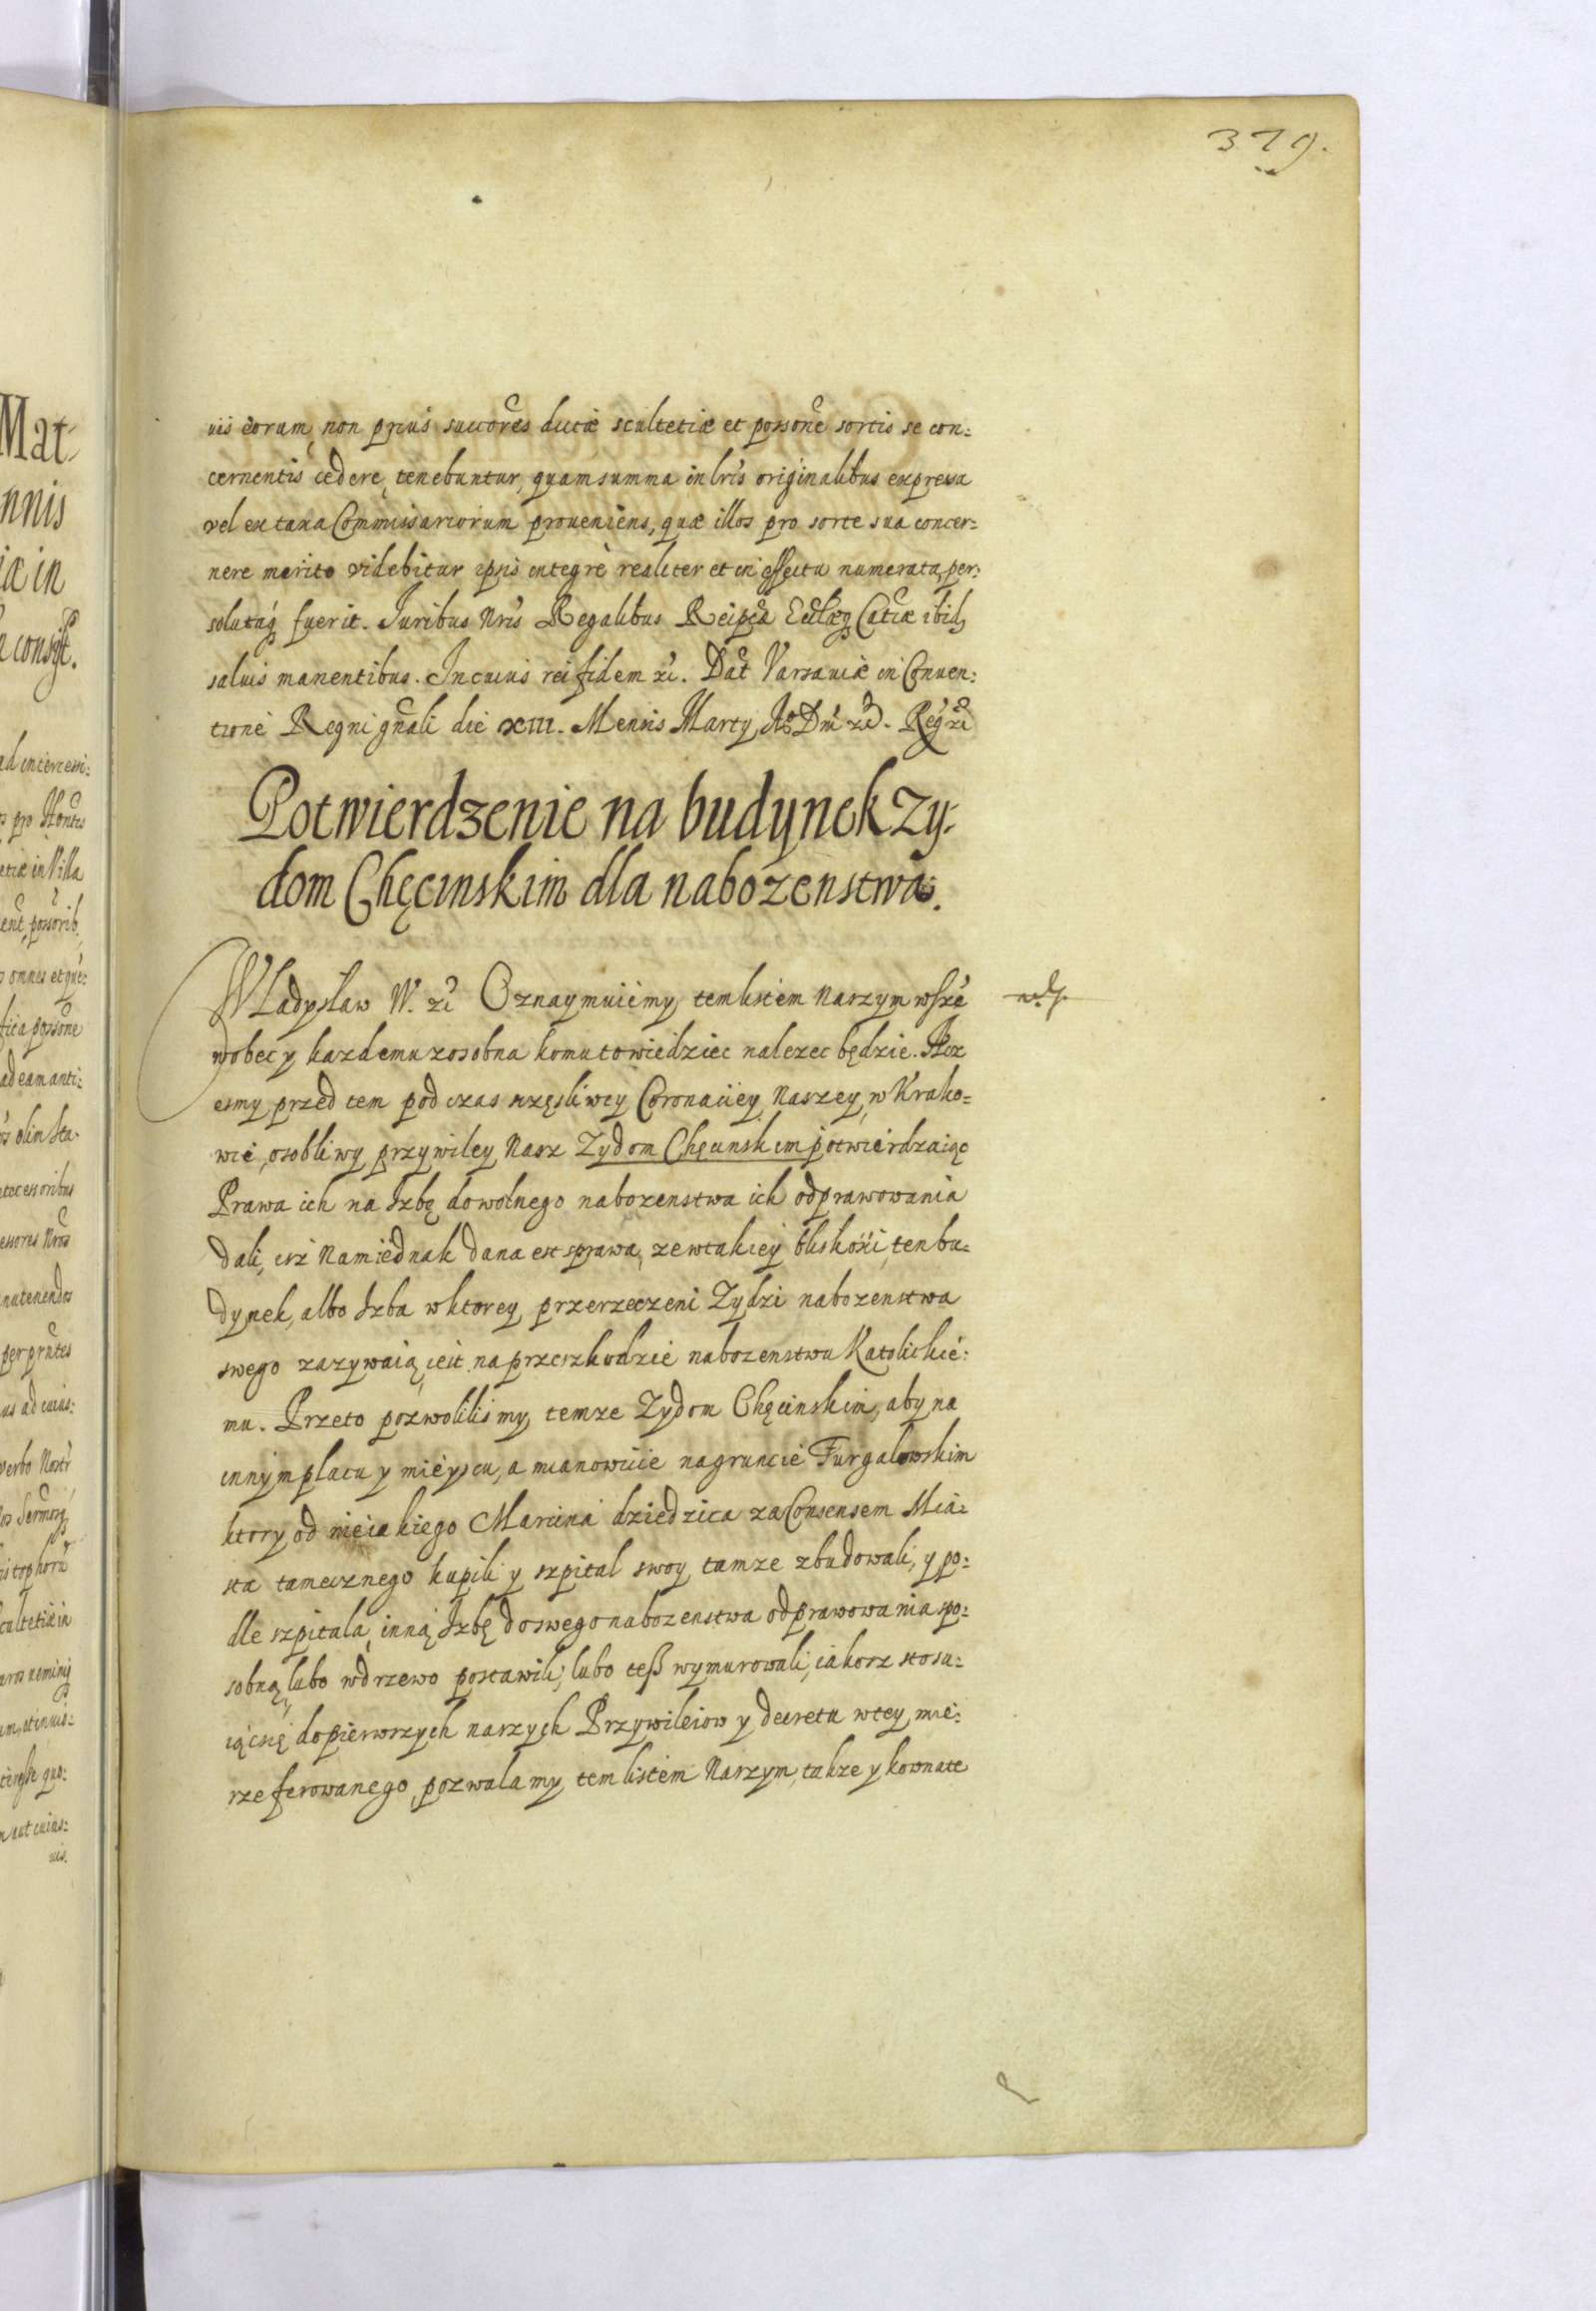 379.
uis eorum, non prius succores dictae scultetiae et possone sortis se con:
cernentis cedere, tenebuntur, quam summa in lris originalibus expressa
vel ex taxa Commissariorum proueniens, quae illos pro sorte sua concer:
nere merito videbitur ipsis integrè realiter et in effectu numerata, per:
solutaq fuerit. Juribus Nris Regalibus Reipca Ecclaeq Catcae ibid,
saluis manentibus. In cuius rei fidem zc. Dat Varsauiae in Conuen:
tione Regni gnali die XIII. Mensis Marty Ao Dni zc. Reg zc
Potwierdzenie na budynek Zy:
dom Chęcinskim dla nabozenstwa.
Władysław IV. zc Oznaymuiemy tem listem Naszym wsze
wobec y kazdemu zosobna komu to wiedziec nalezec będzie. Acz
esmy przed tem pod czas szczęsliwey Coronaciey Naszey w Krako:
wie, osobliwy przywiley Nasz Zydom Chęcinskim potwierdzaiąc
Prawa ich na Izbę dowolnego nabozenstwa ich odprawowania
dali, isz Nam iednak dana est sprawa, ze w takiey bliskosci, ten bu:
dynek, albo Izba w ktorey przerzeczeni Zydzi nabozenstwa
swego zazywaią iest na przeszkodzie nabozenstwu Katolickie:
mu. Przeto pozwolilismy, temze Zydom Chęcinskim, aby na
innym placu y mieyscu, a mianowicie na gruncie Furgalowskim
ktory od nieiakiego Marcina dziedzica za Consensem Mia:
sta tamecznego kupili y szpital swoy tamze zbudowali, y po:
dle szpitala, inną Izbę do swego nabozenstwa odprawowania spo:
sobną, lubo w drzewo postawili, lubo tesz wymurowali, iakosz stosu:
iąc się do pierwszych naszych Przywileiow y decretu w tey mie:
rze ferowanego, pozwalamy tem listem Naszym, takze y kownate